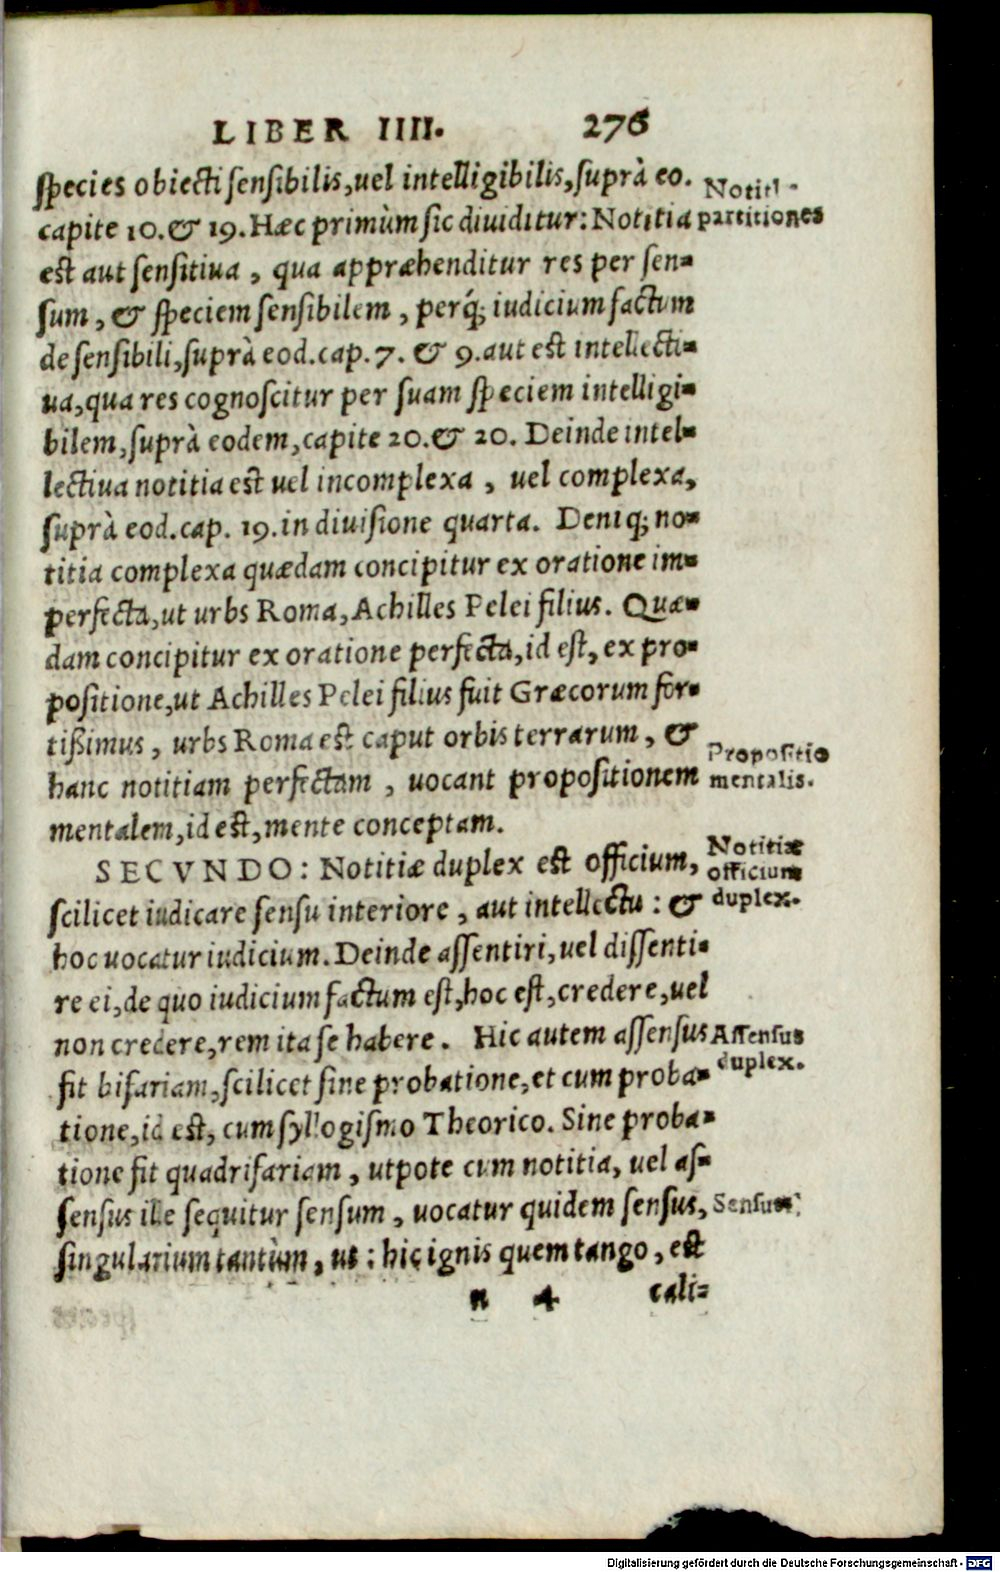 LIBER IIII. 276
species obiecti sensibilis, uel intelligibilis, suprà eo.
capite 10. & 19. Hæc primùm sic diuiditur: Notitia
partitiones
est aut sensitiua, qua appræhenditur res per sen=
sum, & speciem sensibilem, perq́; iudicium factum
de sensibili, suprà eod. cap. 7. & 9. aut est intellecti=
ua, qua res cognoscitur per suam speciem intelligi=
bilem, suprà eodem, capite 20. & 20. Deinde intel=
lectiua notitia est uel incomplexa, uel complexa,
suprà eod. cap. 19. in diuisione quarta. Deniq; no=
titia complexa quædam concipitur ex oratione im=
perfecta, ut urbs Roma, Achilles Pelei filius. Quæ=
dam concipitur ex oratione perfecta, id est, ex pro=
positione, ut Achilles Pelei filius fuit Græcorum for=
tißimus, urbs Roma est caput orbis terrarum, &
Propositio
hanc notitiam perfectam, uocant propositionem
mentalis.
mentalem, id est, mente conceptam.
SECVNDO: Notitiæ duplex est officium,
Notitiæ
officium
scilicet iudicare sensu interiore, aut intellectu: &
duplex.
hoc uocatur iudicium. Deinde assentiri, uel dissenti=
re ei, de quo iudicium factum est, hoc est, credere, uel
non credere, rem ita se habere. Hic autem assensus
Assensus
duplex.
fit bifariam, scilicet sine probatione, et cum proba=
tione, id est, cum syllogismo Theorico. Sine proba=
tione fit quadrifariam, utpote cum notitia, uel as=
sensus ille sequitur sensum, uocatur quidem sensus,
Sensus.
singularium tantùm, ut: hic ignis quem tango, est
n 4 cali=
Digitalisierung gefördert durch die Deutsche Forschungsgemeinschaft - DFG